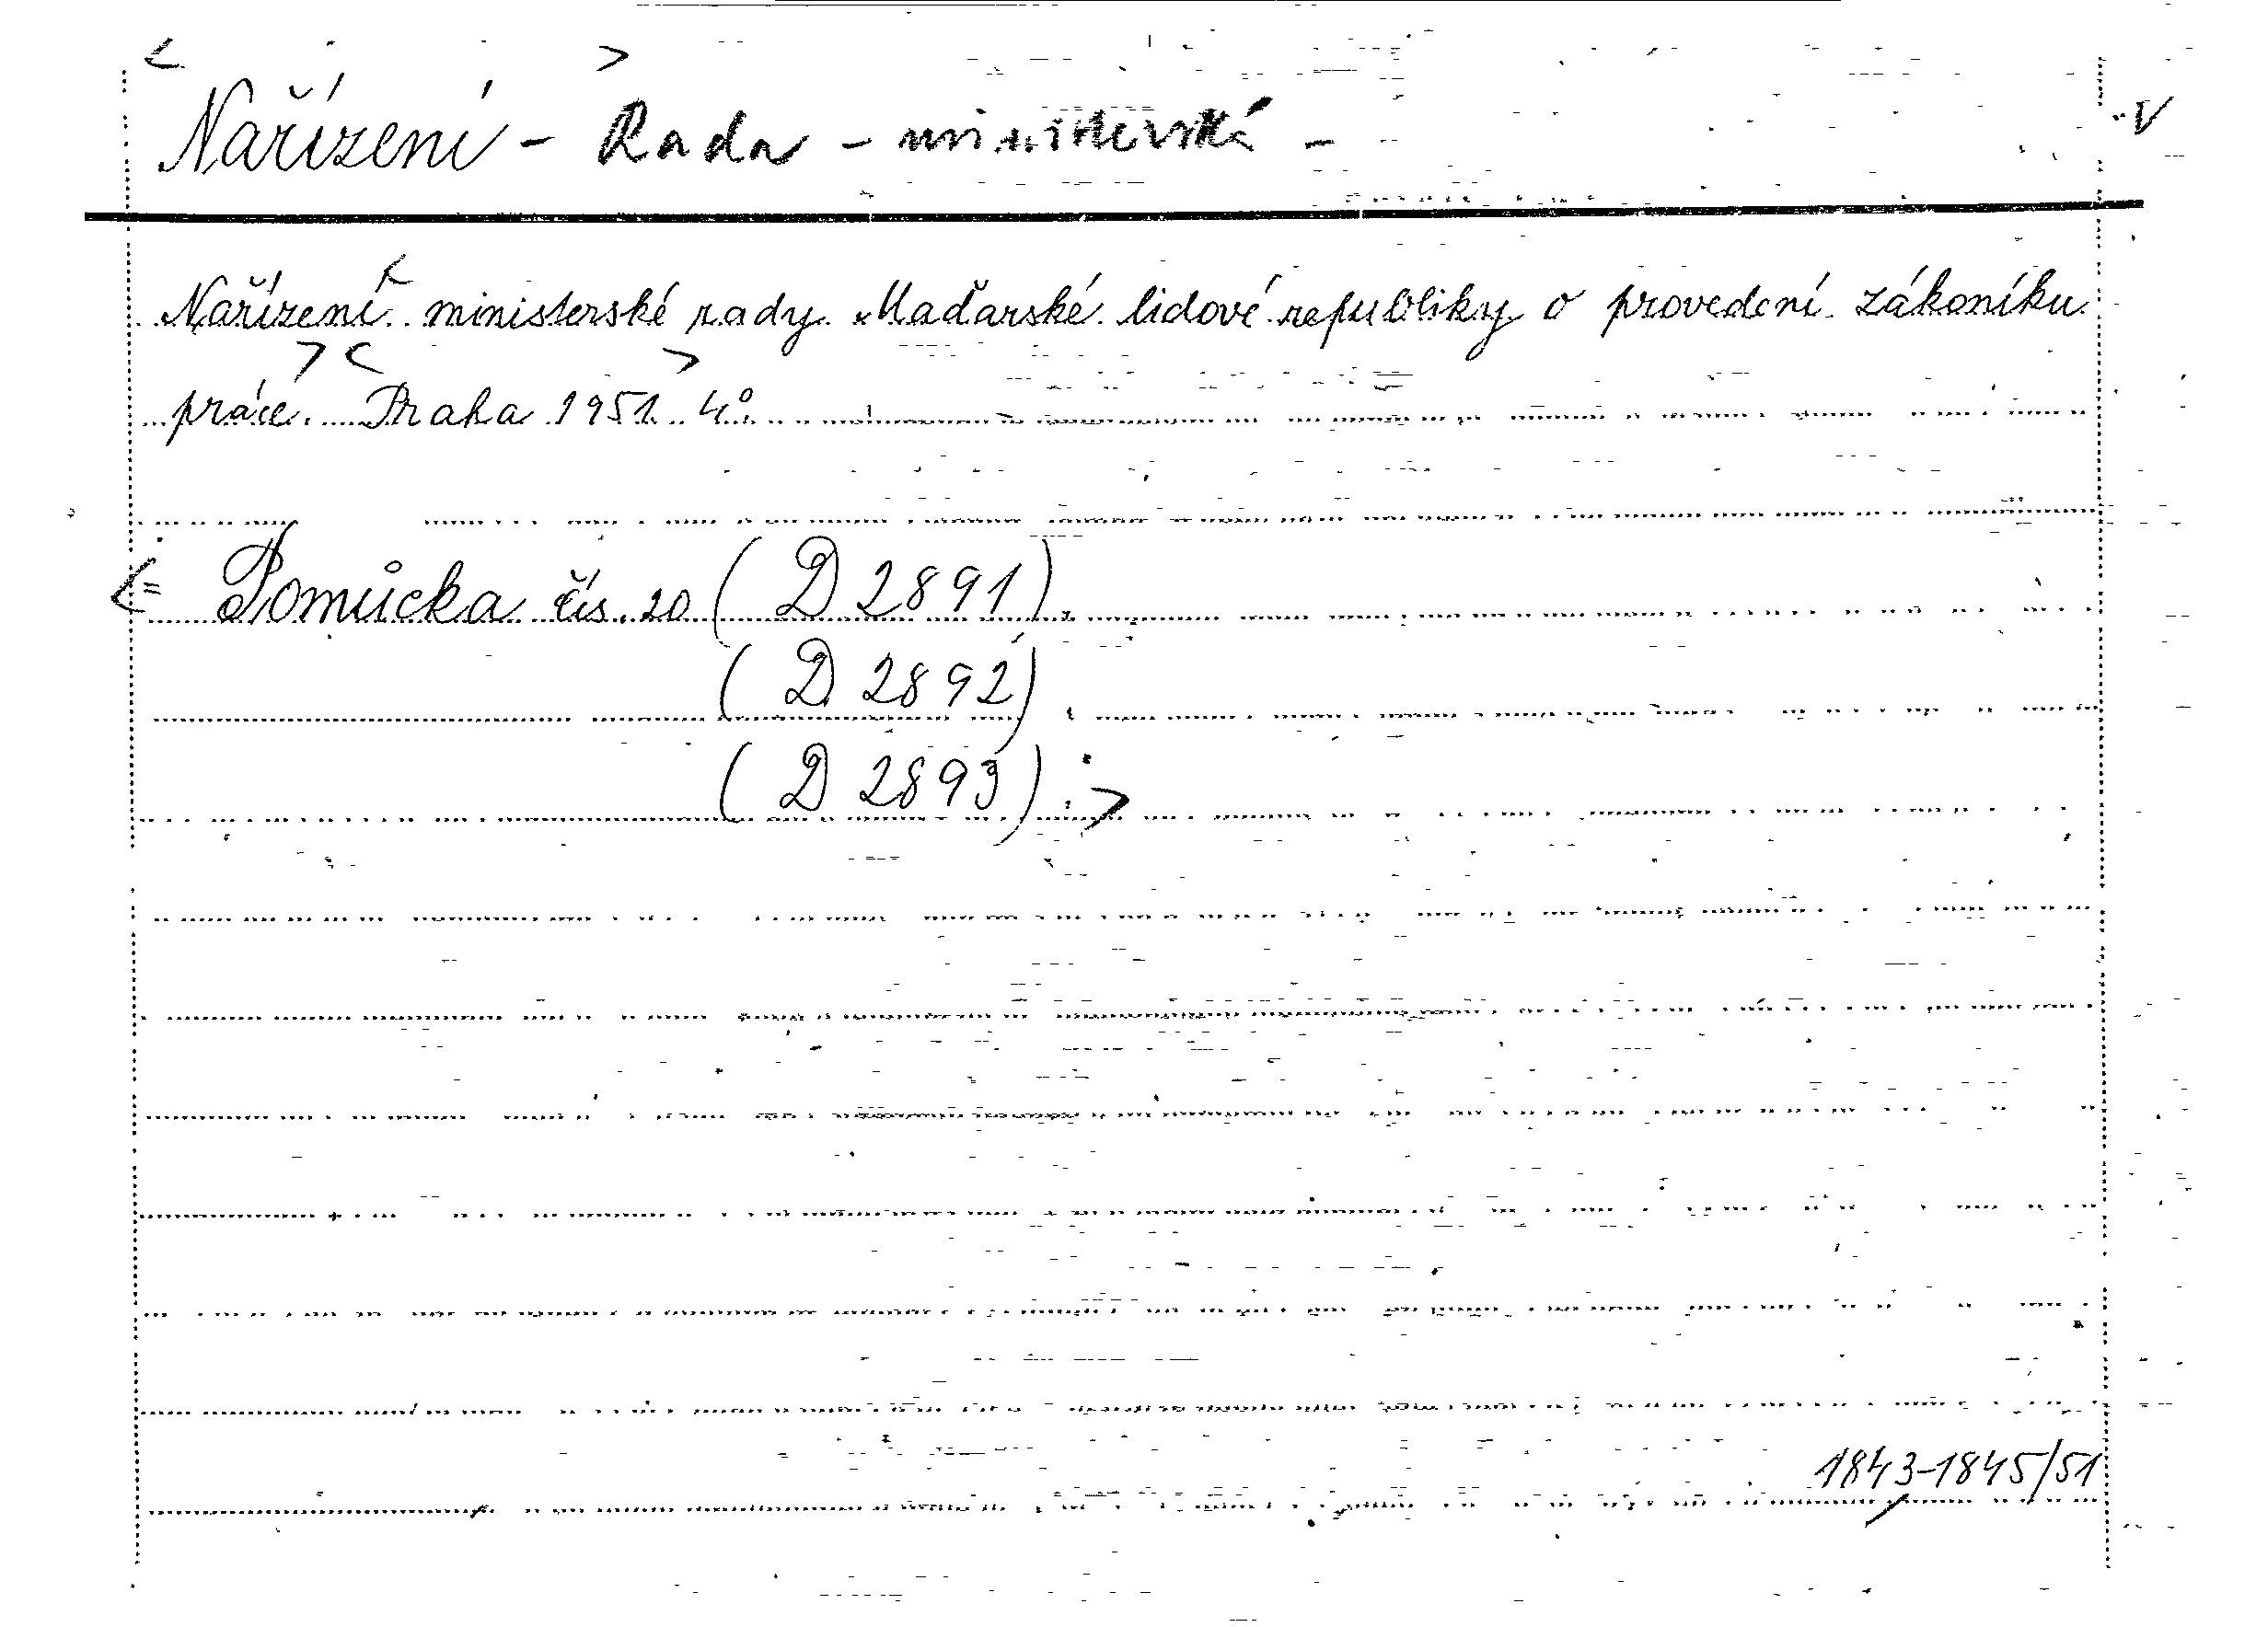 < >
Nařízení - Rada - ministerská - V
Nařízení < ministerské rady Maďarské lidové republiky o provedení zákoníku
práce. > < Praha 1951. > 4°.
<= Pomůcka čís. 20 (D 2891).
(D 2892).
(D 2893). >
1843-1845/51